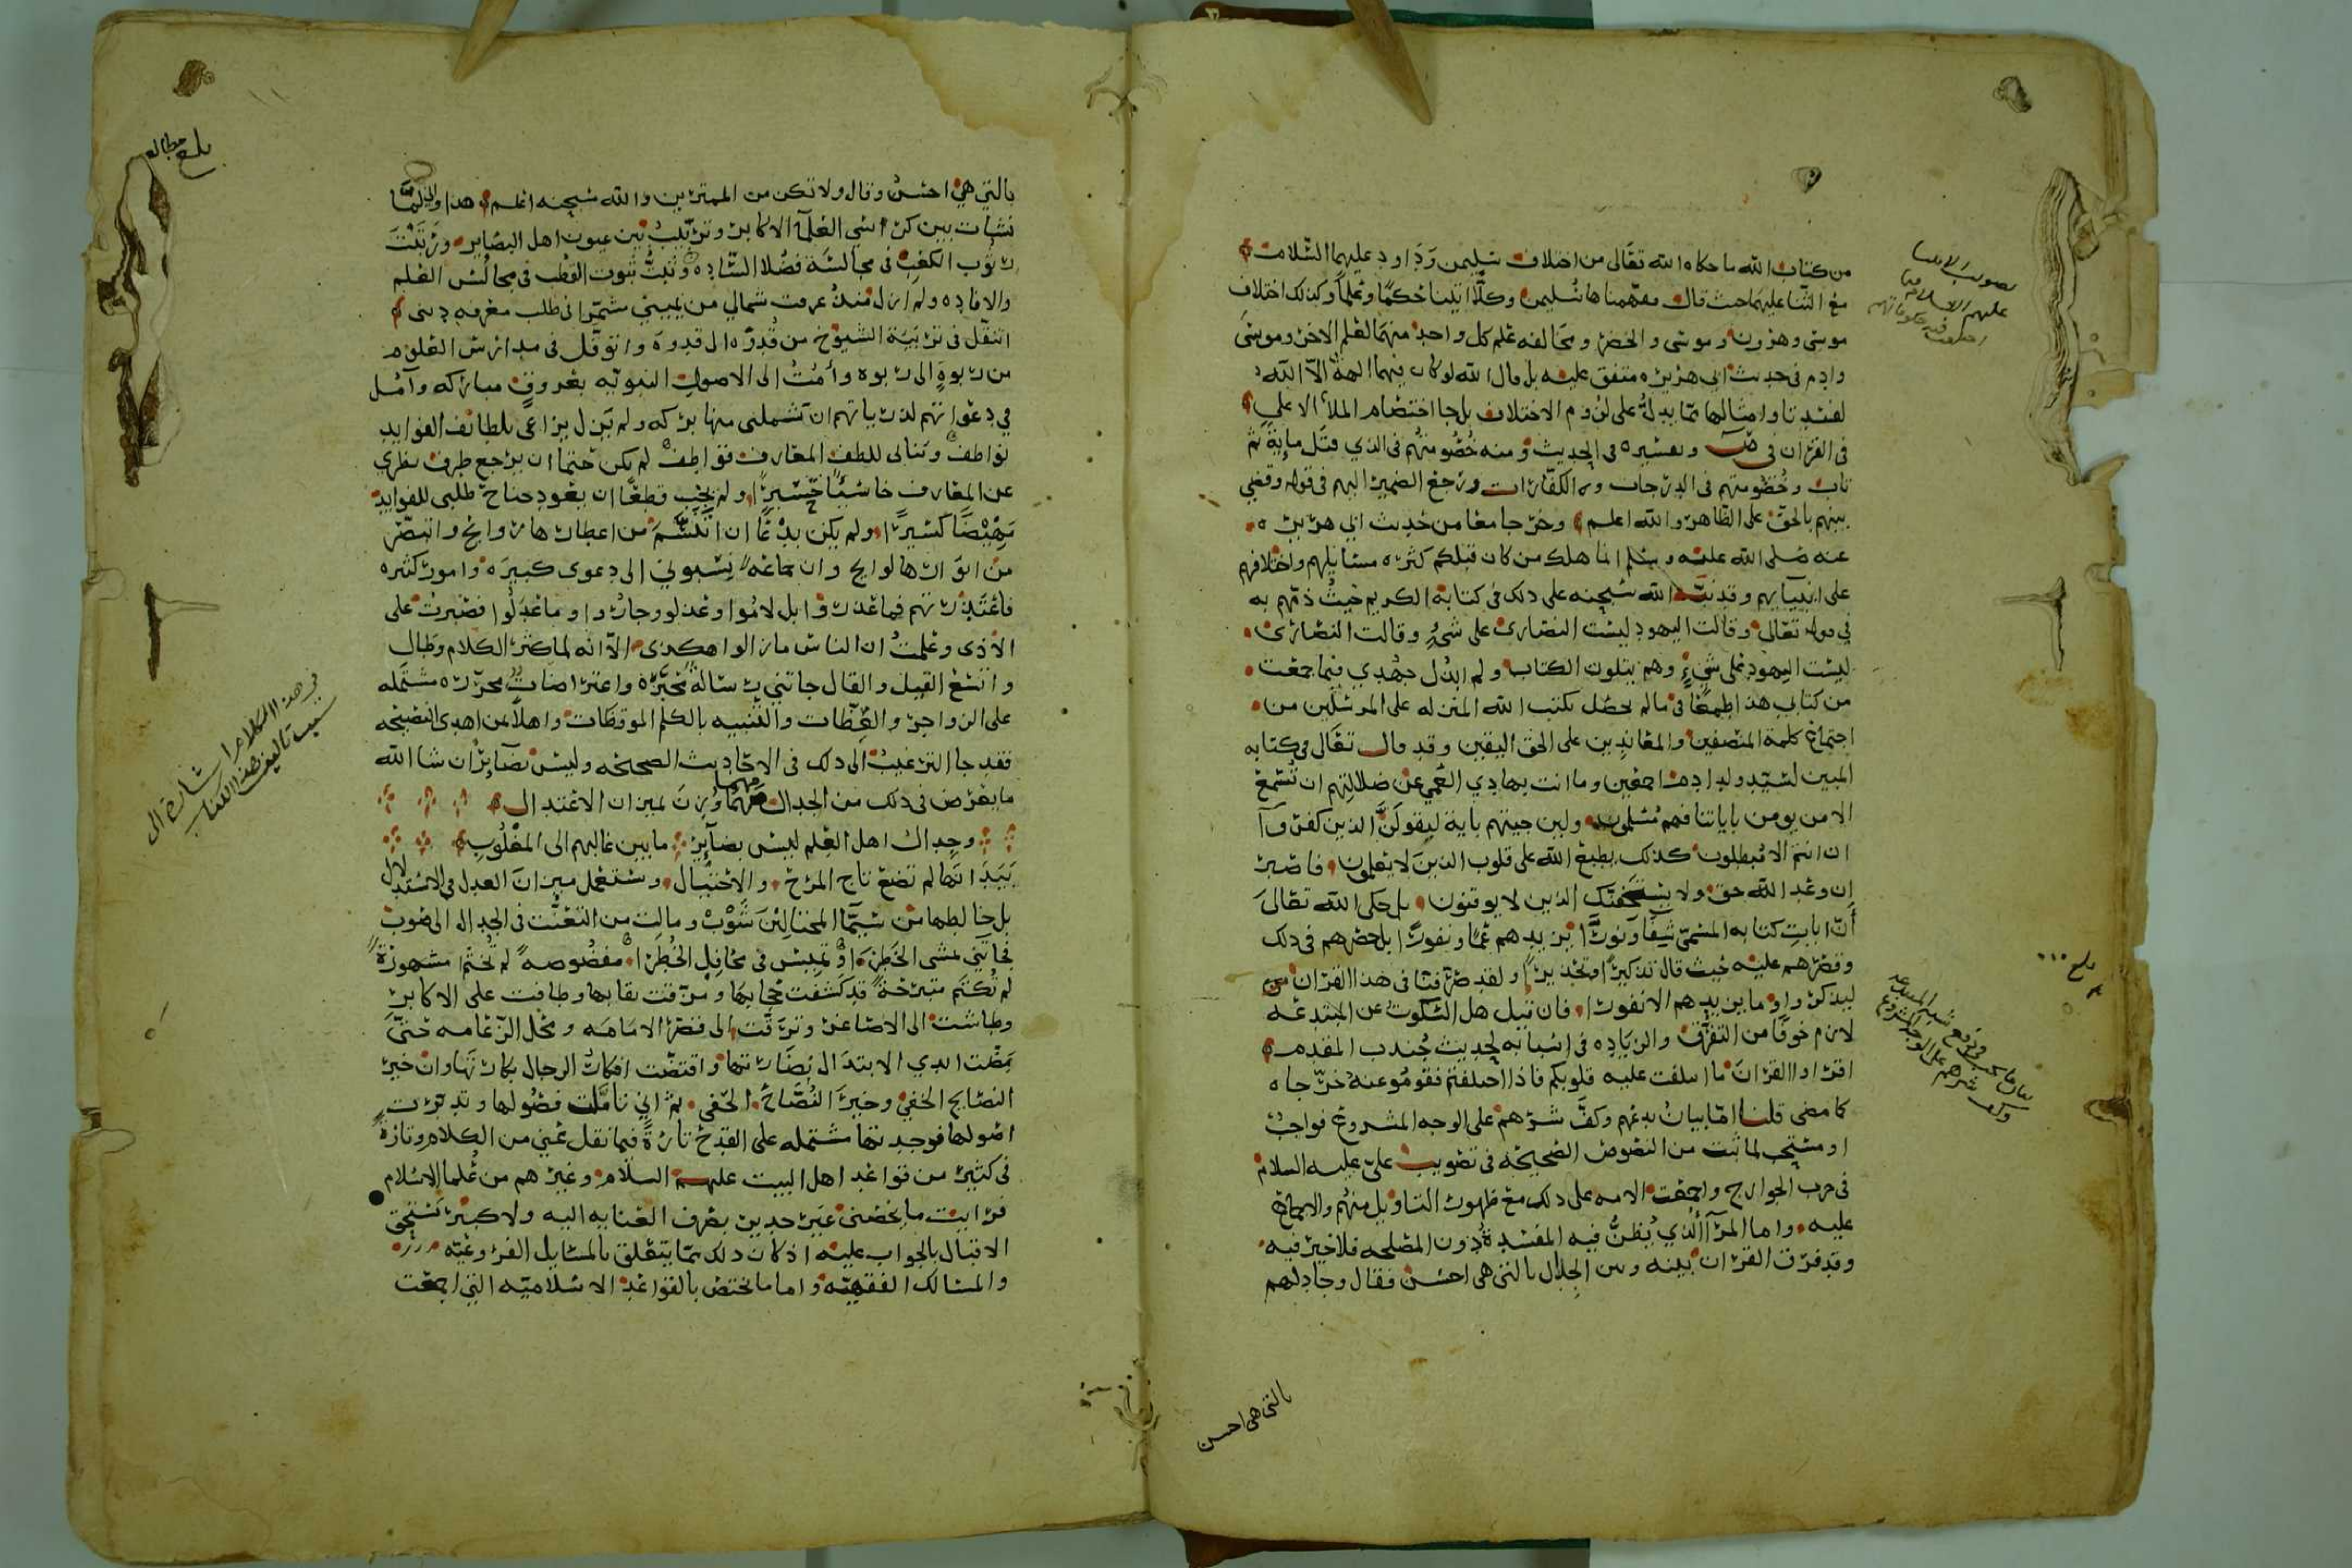 من كتاب الله ما حكاه الله تعالى من اختلاف سليمن وداود عليهما السلام
مع الثنا عليهما حيث قال ففهمناها سليمن وكلا اتينا حكما وعلما وكذلك اختلاف
موسى وهرون وموسى والخضر ومخالفه علم كل واحد منهما لعلم الاخر وموسى
وادم في حديث ابي هريره متفق عليه بل قال الله لو كان فيهما الهة الا الله
لفسدتا وامثالها مما يدل على لزوم الاختلاف بل جا اختصام الملأ الاعلى
في القران في ص وتفسيره في الحديث ومنه خصومتهم في الذي قتل ماية ثم
تاب وخصومتهم في الدرجات والكفارات ورجع الضمير اليهم في قوله وقضي
بينهم بالحق على الظاهر والله اعلم وخرجا معا من حديث ابي هريره
عنه صلى الله عليه وسلم انما هلك من كان قبلكم كثره مسايلهم واختلافهم
على انبيايهم وقد نبه الله سبحنه على ذلك في كتابه الكريم حيث ذمهم به
في قوله تعالى وقالت اليهود ليست النصارى على شيء وقالت النصارى
ليست اليهود على شيء وهم يتلون الكتاب ولم ابذل جهدي فيما جمعت
من كتابي هذا طمعا في ما لم يحصل بكتب الله المنزله على المرسلين من
اجتماع كلمة المنصفين والمعاندين على الحق اليقين وقد قال تعالى في كتابه
المبين لسيد ولد ادم اجمعين وما انت بهادي العمي عن ضلالتهم ان تسمع
الا من يومن باياتنا فهم مسلمون ولين جيتهم باية ليقولن الذين كفروا
ان انتم الا مبطلون كذلك يطبع الله على قلوب الذين لا يعلمون فاصبر
ان وعد الله حق ولا يستخفنك الذين لا يوقنون بل حكى الله تعالى
أن ايات كتابه المسمى شفا ونورا يزيدهم عمًا ونفورا بل حصرهم في ذلك
وقصرهم عليه حيث قال تذكيرا وتحذيرا ولقد صرفنا في هذا القران
ليذكروا وما يزيدهم الا نفورا فان قيل هل السكوت عن المبتدعه
لازم خوفا من التفرق والزياده في اسبابه لحديث جندب المقدم
اقروا القران ما ايتلفت عليه قلوبكم فاذا اختلفتم فقوموا عنه خرجاه
كما مضى قلنا اما بيان بدعهم وكف شرهم على الوجه المشروع فواجب
او مستحب لما ثبت من النصوص الصحيحه في تصويب علي عليه السلام
في حرب الخوارج واجمعت الامه على ذلك مع ظهور التاويل منهم والاجماع
عليه واما المرا الذي يظن فيه المفسدة دون المصلحه فلا خير فيه
وقد فرق القران بينه وبين الجدال بالتي هي احسن فقال وجادلهم
بالتي هى احسن
بالتي هي احسن وقال ولا تكن من الممترين والله سبحنه اعلم هذا واني لما
نشات بين كراسي العلما الاكابر وتربيت بين عيون اهل البصاير ورتبت
رتوب الكعب في مجالسة فضلا السادة وثبت ثبوت القطب في مجالس العلم
والافاده ولم ازل منذ عرفت شمالي من يميني مشمرا في طلب معرفه ديني
اتنقل في تربية الشيوخ من قدوه الى قدوة واتوقل في مدارس العلوم
من ربوة الى ربوه وأمت الى الاصول النبويه بعروق مباركه وآمل
في دعواتهم لذرياتهم ان تشملني منها بركه ولم يزل يراعي بلطايف الفوايد
نواطف وبناني للطف المعارف قواطف لم يكن حتما ان يرجع طرف نظري
عن المعارف خاسيا حسيرا ولم يجب قطعا ان يعود جناح طلبي للفوايد
مهيضا كسيرا ولم يكن بدعا ان اتنسم من اعطارها روايح واتبصر
من انوارها لوايح وان جماعه نسبوني الى دعوى كبيرة وامور كثيره
فاعتذرت منهم فما عذروا بل لاموا وعذلوا وجاروا وما عدلوا فصبرت على
الاذى وعلمت ان الناس ما زالوا هكذى الا انه لما كثر الكلام وطال
واتسع القيل والقال جاتني رسالة محبرة واعتراضات محررة مشتمله
على الزواجر والعظات والتنبيه بالكلم الموقظات واهلا بمن اهدى النصيحه
فقد جا الترغيب الى ذلك في الاحاديث الصحيحه وليس بضاير ان شا الله
ما يعرض في ذلك من الجدال مهما وزن لميزان الاعتدال
وجدال اهل العلم ليس بضاير ما بين غالبهم الى المغلوب
بيد انها لم تضع تاج المرح والاختيال وتستعمل ميزان العدل في الاستدلال
بل خالطها من سيما المختالين شوب ومالت من التعنت في الجدال الى صوب
فجاتني تمشي الخطرا وتميس في محافل الخطرا مفضوضه لم تختم مشهورة
لم تكتم متبرجة قد كشفت حجابها ومزقت نقابها وطافت على الاكابر
وطاشت الى الاصاغر وترقت الى قصر الامامه ومحل الزعامه حتى
مصت ايدي الابتذال نضارتها وافتضت افكار الرجال بكارتها وان خير
النصايح الخفي وخير النصاح الحفي ثم اني تاملت فصولها وتدبرت
اصولها فوجدتها مشتمله على القدح تارة فيما نقل عني من الكلام وتارة
في كثير من قواعد اهل البيت عليهم السلام وغيرهم من علما الاسلام
فرايت ما يخصني غير جدير بصرف العنايه اليه ولا كبير يستحق
الاقبال بالجواب عليه اذ كان ذلك مما يتعلق بالمسايل الفروعيه
والمسالك الفقهيه واما ما يختص بالقواعد الاسلاميه التي اجمعت
بلغ مطالعه
في هذا الكلام اشارة الى
سبب تاليف هذا الكتاب